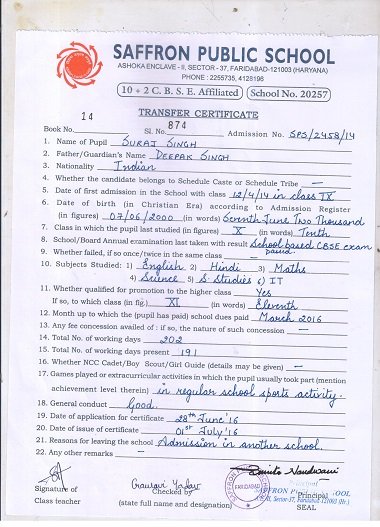 SAFFRON PUBLIC SCHOOL
ASHOKA ENCLAVE - II, SECTOR - 37, FARIDABAD-121003 (HARYANA)
PHONE : 2255735, 4128196
10 + 2 C. B. S. E. Affiliated School No. 20257
TRANSFER CERTIFICATE
Book No. 14 Sl. No. 874 Admission No. SPS/2458/14
1. Name of Pupil SURAJ SINGH
2. Father/Guardian's Name DEEPAK SINGH
3. Nationality Indian
4. Whether the candidate belongs to Schedule Caste or Schedule Tribe —
5. Date of first admission in the School with class 12/4/14 in class IX
6. Date of birth (in Christian Era) according to Admission Register
(in figures) 07/06/2000 (in words) Seventh June Two Thousand
7. Class in which the pupil last studied (in figures) X (in words) Tenth
8. School/Board Annual examination last taken with result School based CBSE exam
passed
9. Whether failed, if so once/twice in the same class
10. Subjects Studied: 1) English 2) Hindi 3) Maths
4) Science 5) S. Studies 6) IT
11. Whether qualified for promotion to the higher class Yes
If so, to which class (in fig.) XI (in words) Eleventh
12. Month up to which the (pupil has paid) school dues paid March 2016
13. Any fee concession availed of : if so, the nature of such concession —
14. Total No. of working days 202
15. Total No. of working days present 191
16. Whether NCC Cadet/Boy Scout/Girl Guide (details may be given) —
17. Games played or extracurricular activities in which the pupil usually took part (mention
achievement level therein) in regular school sports activity.
18. General conduct Good.
19. Date of application for certificate 28th June '16
20. Date of issue of certificate 01st July '16
21. Reasons for leaving the school Admission in another school.
22. Any other remarks —
Signature of
Class teacher
Gaurav Yadav
Checked by
(state full name and designation)
FARIDABAD
Principal
SAFFRON PUBLIC SCHOOL
Sector-37, Faridabad-121003 (Hr.)
Principal
SEAL